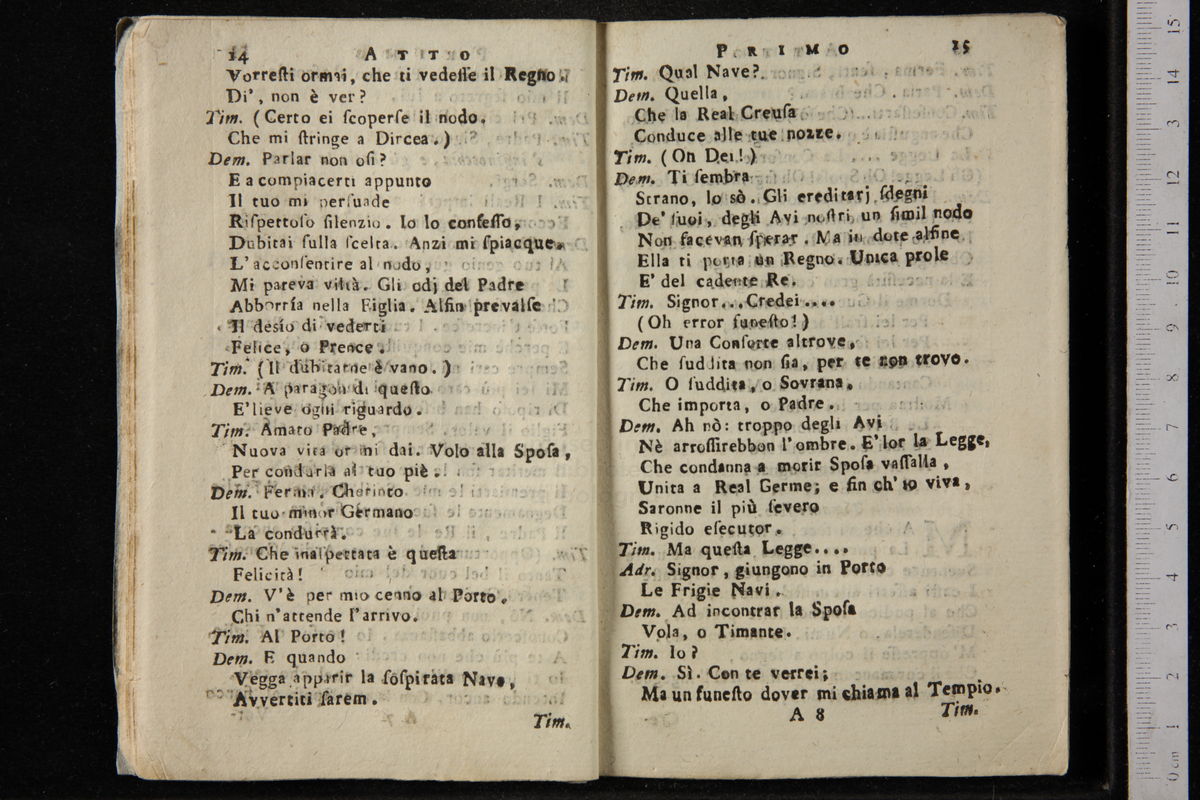 14 ATTO
Vorreſti ormai, che ti vedeſſe il Regno.
Di', non è ver?
Tim. (Certo ei ſcoperſe il nodo,
Che mi ſtringe a Dircea.)
Dem. Parlar non oſi?
E a compiacerti appunto
Il tuo mi perſuade
Riſpettoſo ſilenzio. Io lo confeſſo,
Dubitai ſulla ſcelta. Anzi mi ſpiacque.
L'acconſentire al nodo,
Mi pareva viltà. Gli odj del Padre
Abborría nella Figlia. Alfin prevalſe
Il desío di vederti
Felice, o Prence.
Tim. (Il dubitarne è vano.)
Dem. A paragon di queſto
E'lieve ogni riguardo.
Tim. Amato Padre,
Nuova vita or mi dai. Volo alla Spoſa,
Per condurla al tuo piè.
Dem. Ferma. Cherinto
Il tuo minor Germano
La condurrà.
Tim. Che inaſpettata è queſta
Felicità!
Dem. V'è per mio cenno al Porto,
Chi n'attende l'arrivo.
Tim. Al Porto!
Dem. E quando
Vegga apparir la ſoſpirata Nave,
Avvertiti ſarem.
Tim.
PRIMO 15
Tim. Qual Nave?
Dem. Quella,
Che la Real Creuſa
Conduce alle tue nozze.
Tim. (Oh Dei!)
Dem. Ti ſembra
Strano, lo sò. Gli ereditarj ſdegni
De' ſuoi, degli Avi noſtri un ſimil nodo
Non facevan ſperar. Ma in dote alfine
Ella ti porta un Regno. Unica prole
E' del cadente Re.
Tim. Signor...Credei....
(Oh error funeſto!)
Dem. Una Conſorte altrove,
Che ſuddita non ſia, per te non trovo.
Tim. O ſuddita, o Sovrana,
Che importa, o Padre.
Dem. Ah nò: troppo degli Avi
Nè arroſſirebbon l'ombre. E'lor la Legge,
Che condanna a morir Spoſa vaſſalla,
Unita a Real Germe; e fin ch'io viva,
Saronne il più ſevero
Rigido eſecutor.
Tim. Ma queſta Legge....
Adr. Signor, giungono in Porto
Le Frigie Navi.
Dem. Ad incontrar la Spoſa
Vola, o Timante.
Tim. Io?
Dem. Sì. Con te verrei;
Ma un funeſto dover mi chiama al Tempio.
A 8 Tim.
15
14
13
12
11
10
9
8
7
6
5
4
3
2
1
0 cm